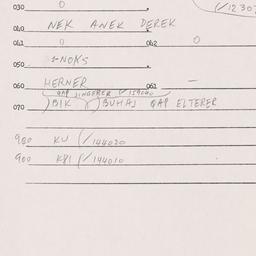 030 0 (/1230
040 NEK ANEK DEREK
041 0 042 0
050 1-NOKS
060 HERNER 061 —
QAP JINGERER /159040
070 )BIK )( BUHAJ QAP ELTERER
900 KU (/144020
900 KPI (/144010